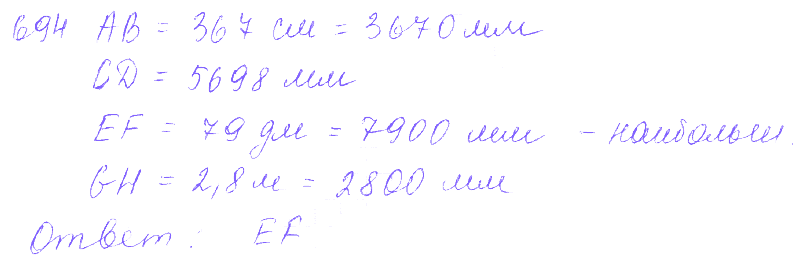 694 AB = 367 см = 3670 мм
CD = 5698 мм
EF = 79 дм = 7900 мм - наибольш.
GH = 2,8 м = 2800 мм
Ответ: EF